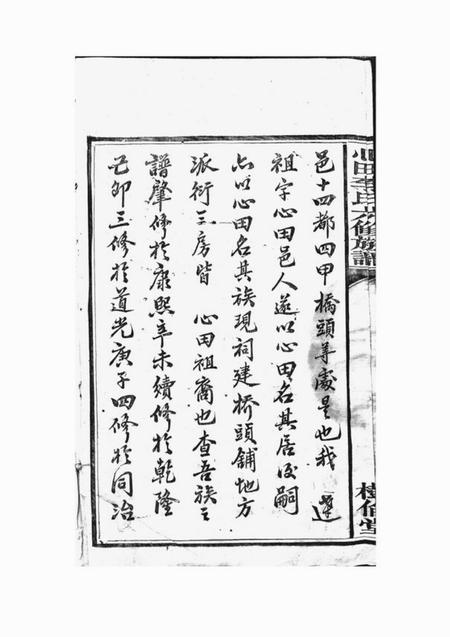 心田李氏六修族譜
邑十四都四甲橋頭等處是也我 遷
祖字心田邑人遂以心田名其居後嗣
亦以心田名其族現祠建橋頭舖地方
派衍三房皆 心田祖裔也查吾族之
譜肇修於康熙辛未續修於乾隆
己卯三修於道光庚子四修於同治